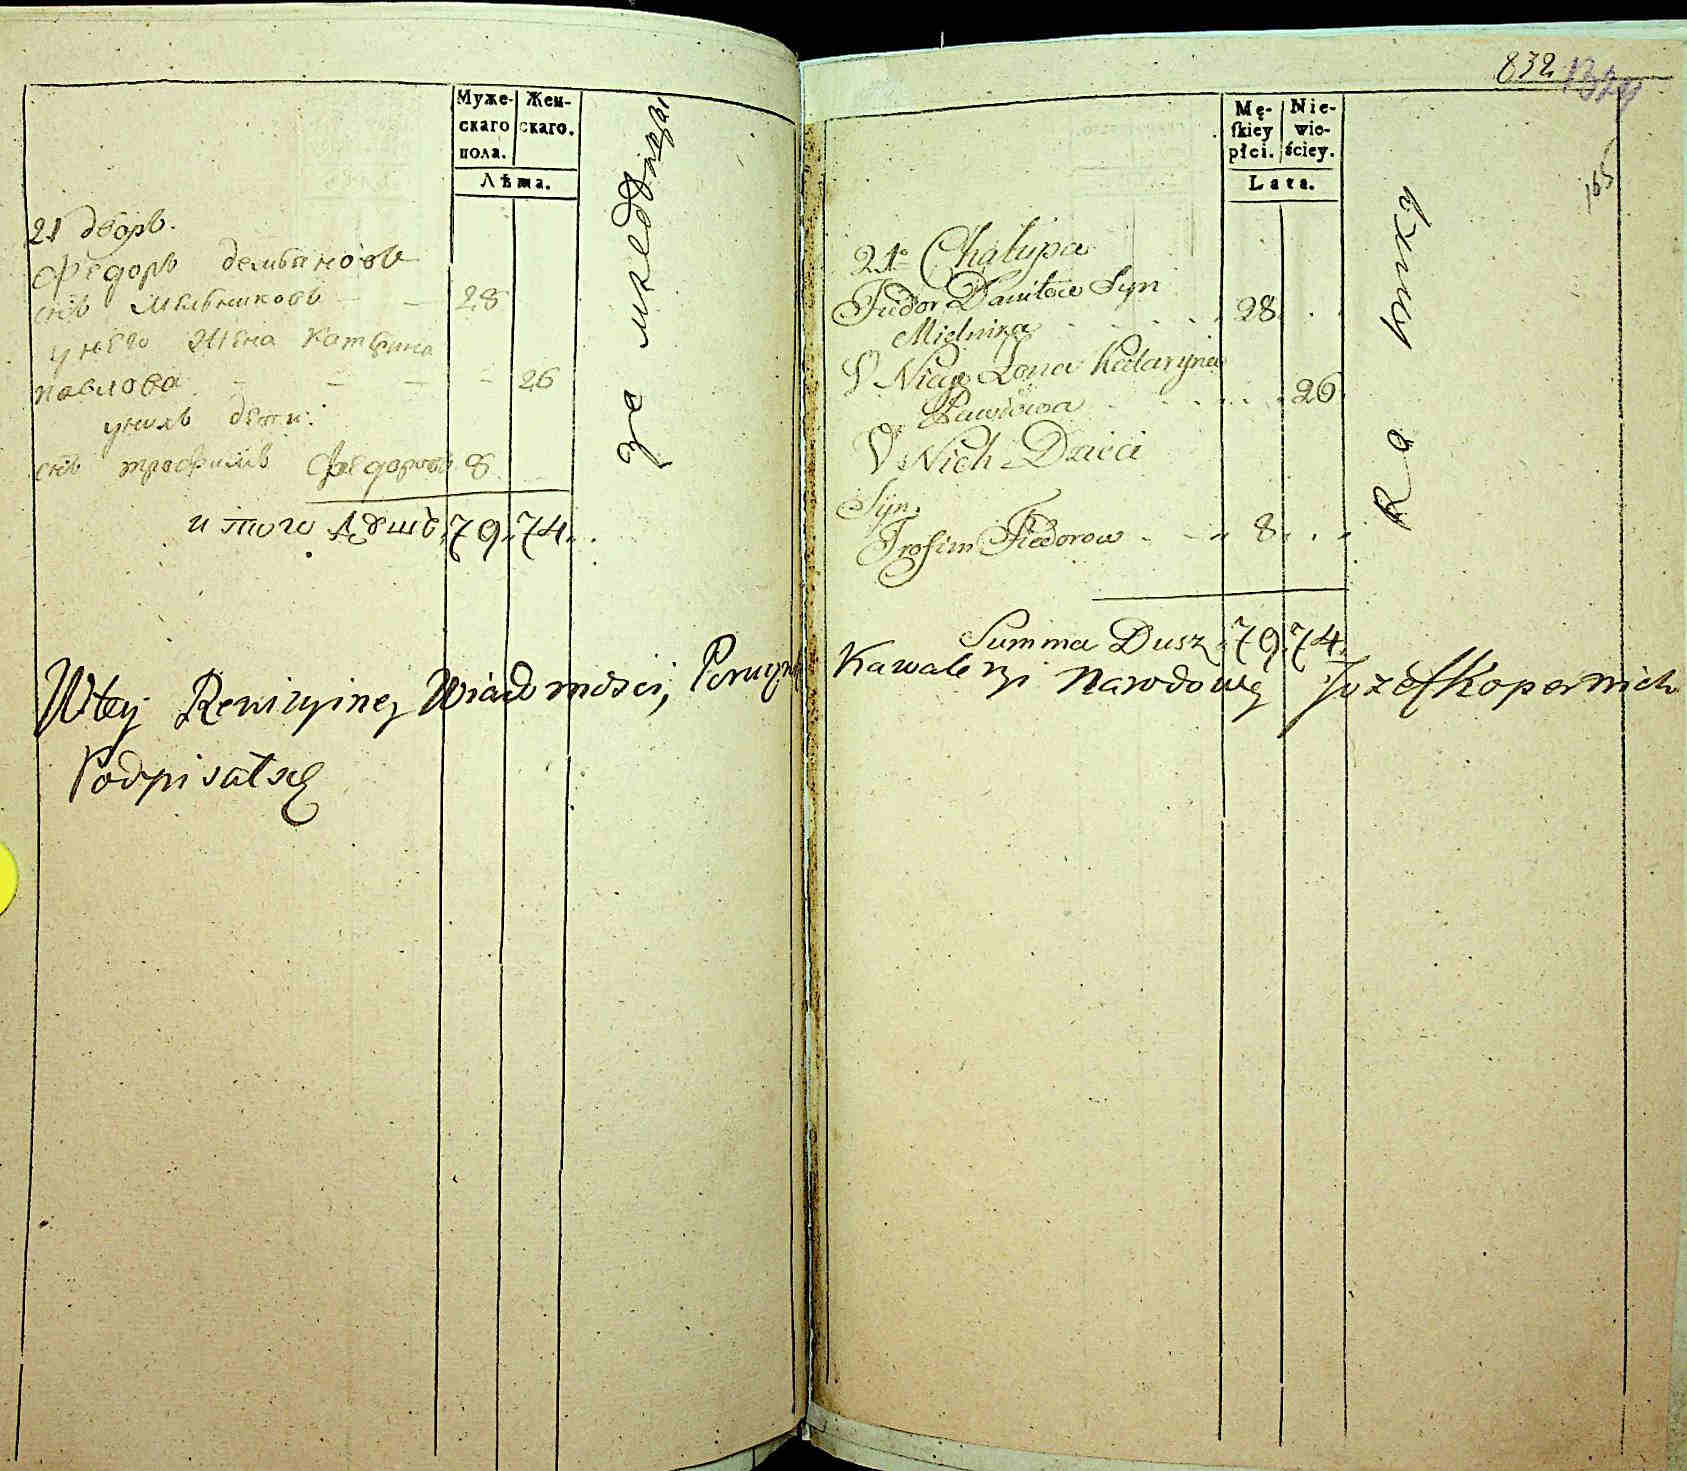 Муже-
скаго
пола.
Жен-
скаго.
Лѣта.
21 дворъ.
Федоръ
снъ Мельниковъ 28
у него жена Катерина
павлова 26
у нихъ дети:
снъ трофимъ Федоровъ 8
итого душъ 79. 74.
за
832
165
Mę-
skiey
płci.
Nie-
wie-
ściey.
Lata.
21. Chałupa
Fiedor Daniłow Syn
Mielnika 28
U Niego Żona Kataryna
Pawłowa 26
U Nich Dzieci
Syn
Trofim Fiedorow 8
Summa Dusz 79. 74.
W tey Rewizyiney Wiadomości, Porucznik Kawaleryi Narodowey Jozef Kopernicki
Podpisał się